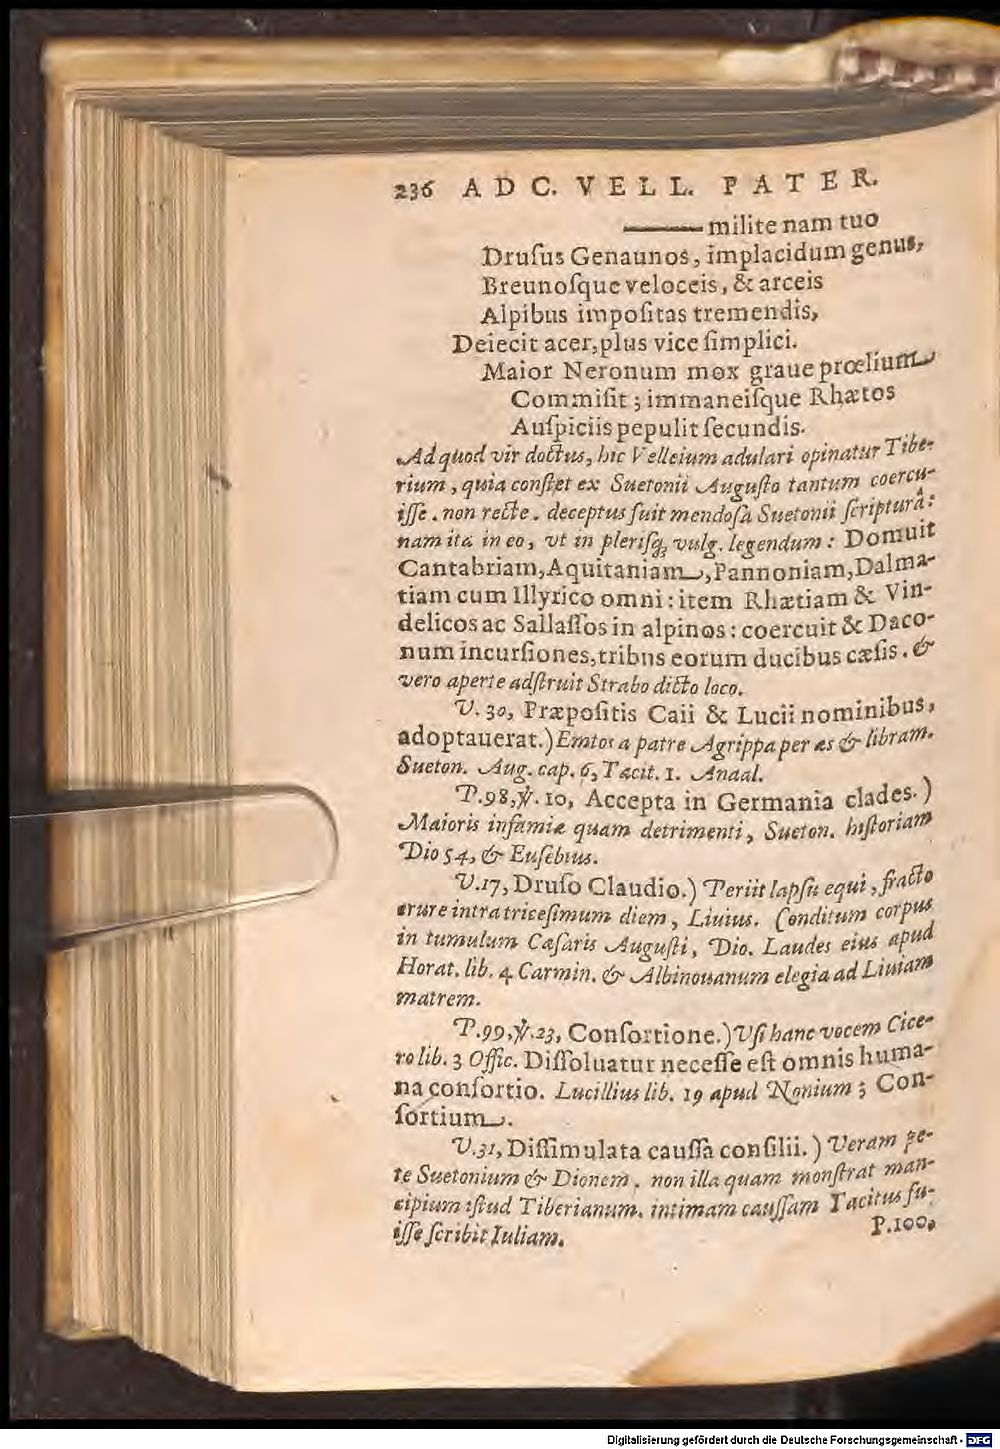 236 AD C. VELL. PATER.
——— milite nam tuo
Druſus Genaunos, implacidum genus,
Breunoſque veloceis, & arceis
Alpibus impoſitas tremendis,
Deiecit acer, plus vice ſimplici.
Maior Neronum mox graue prœlium
Commiſit; immaneiſque Rhætos
Auſpiciis pepulit ſecundis.
Ad quod vir doctus, hic Velleium adulari opinatur Tibe-
rium, quia conſtet ex Suetonii Auguſto tantum coercu-
iſſe. non recte. deceptus fuit mendoſa Suetonii ſcripturâ:
nam ita in eo, vt in pleriſq; vulg. legendum: Domuit
Cantabriam, Aquitaniam, Pannoniam, Dalma-
tiam cum Illyrico omni: item Rhætiam & Vin-
delicos ac Sallaſſos in alpinos: coercuit & Daco-
num incurſiones, tribus eorum ducibus cæſis. &
vero aperte adſtruit Strabo dicto loco.
V. 30, Præpoſitis Caii & Lucii nominibus,
adoptauerat.) Emtos a patre Agrippa per æs & libram.
Sueton. Aug. cap. 6, Tacit. 1. Anaal.
P. 98, ℣. 10, Accepta in Germania clades.)
Maioris infamiæ quam detrimenti, Sueton. hiſtoriam
Dio 54, & Euſebius.
V. 17, Druſo Claudio.) Periit lapſu equi, fracto
crure intra triceſimum diem, Liuius. Conditum corpus
in tumulum Cæſaris Auguſti, Dio. Laudes eius apud
Horat. lib. 4 Carmin. & Albinouanum elegia ad Liuiam
matrem.
P. 99, ℣. 23, Conſortione.) Vſi hanc vocem Cice-
ro lib. 3 Offic. Diſſoluatur neceſſe eſt omnis huma-
na conſortio. Lucillius lib. 19 apud Nonium; Con-
ſortium.
V. 31, Diſſimulata cauſſa conſilii.) Veram pe-
te Suetonium & Dionem. non illa quam monſtrat man-
cipium iſtud Tiberianum. intimam cauſſam Tacitus fu-
iſſe ſcribit Iuliam.
P. 100,
Digitalisierung gefördert durch die Deutsche Forschungsgemeinschaft - DFG